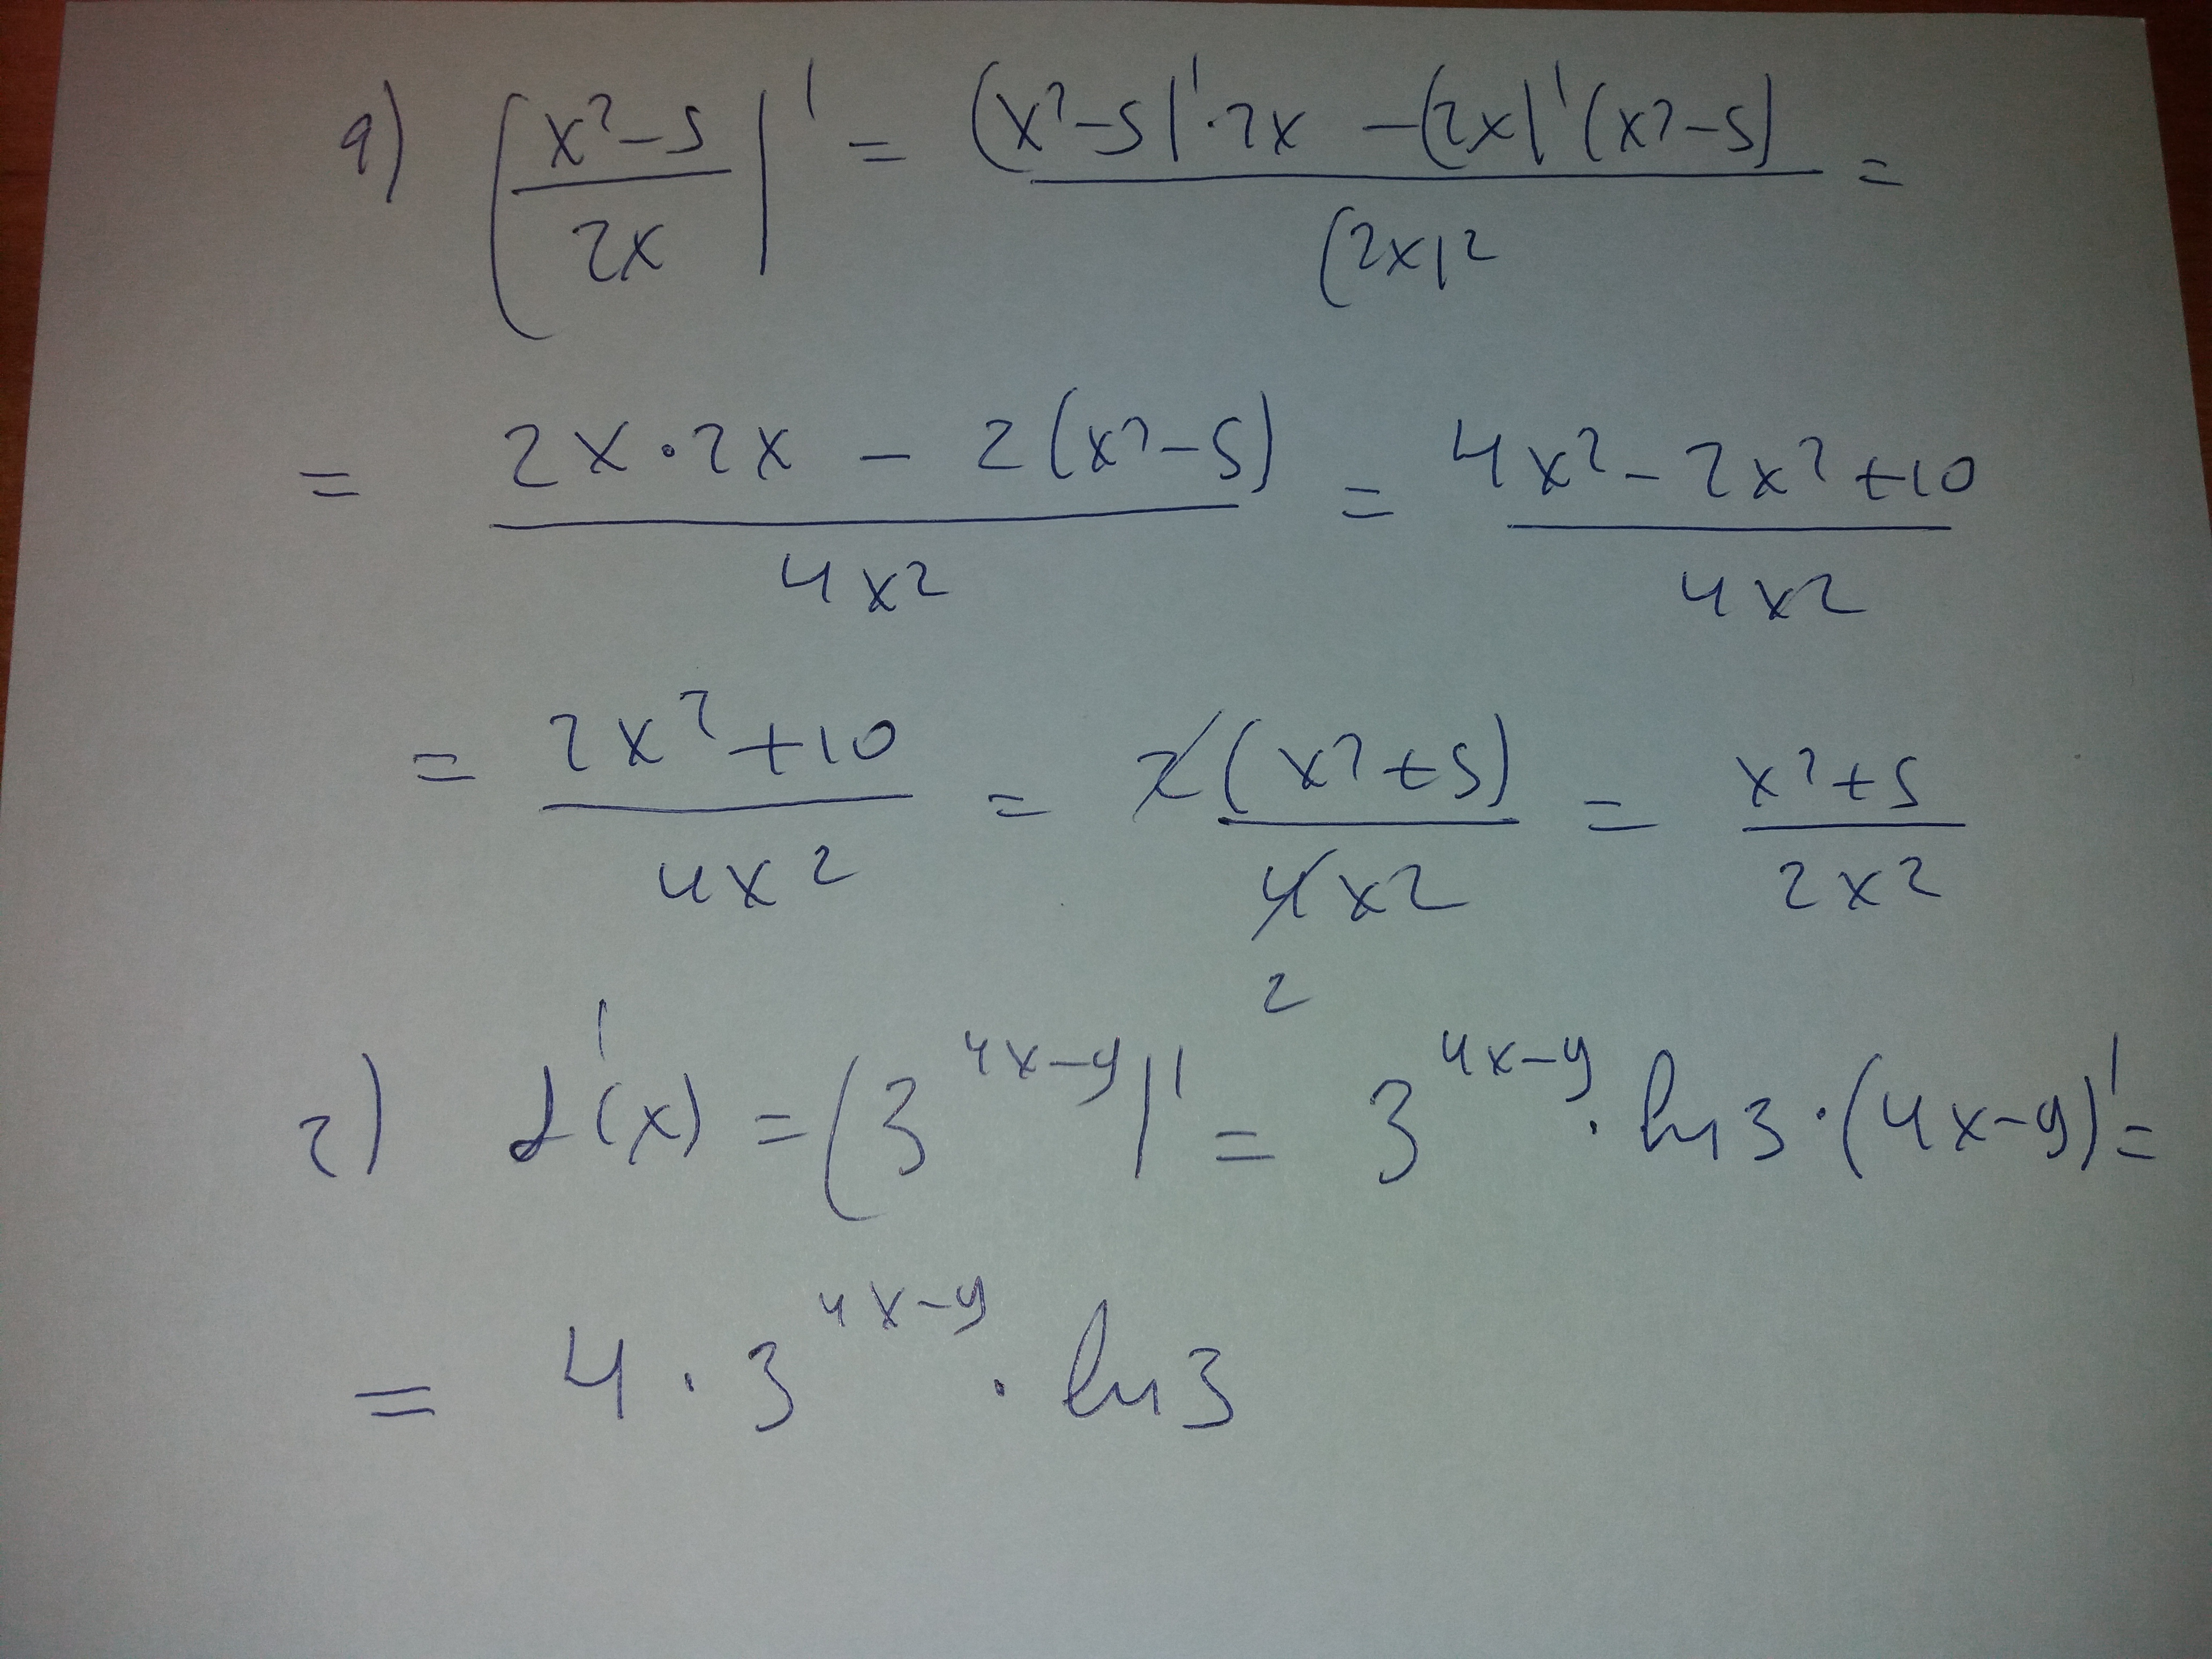 а) ((x²-5)/(2x))' = ((x²-5)'·2x - (2x)'(x²-5))/(2x)² =
= (2x·2x - 2(x²-5))/(4x²) = (4x²-2x²+10)/(4x²)
= (2x²+10)/(4x²) = 2(x²+5)/(4x²) = (x²+5)/(2x²)
2
г) f'(x) = (3^(4x-9))' = 3^(4x-9)·ln3·(4x-9)' =
= 4·3^(4x-9)·ln3